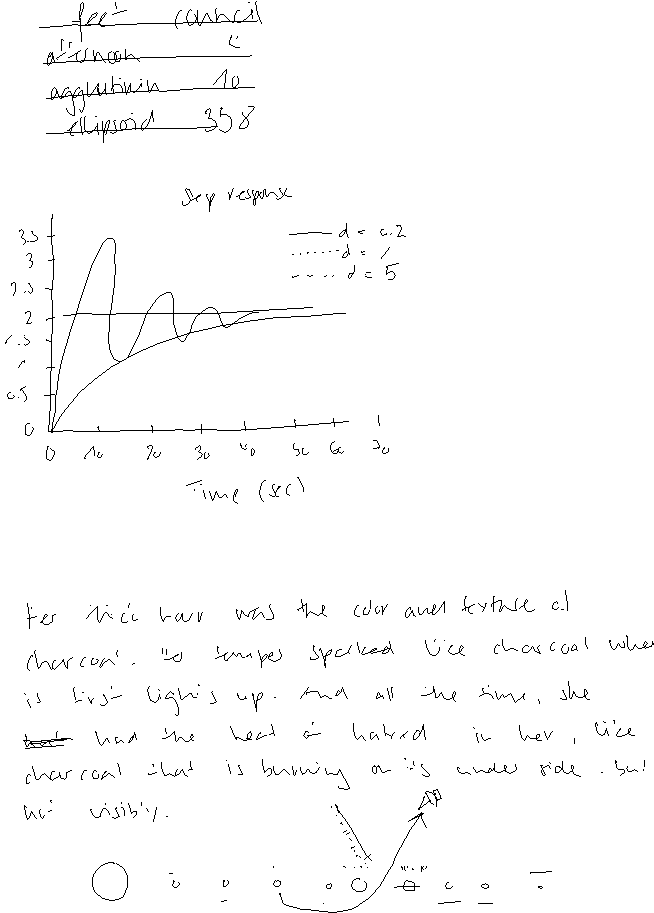 feet council
afternoon
agglutinin 10
ellipsoid 358
Step response
d = 0.2
d = 1
d = 5
3.5
3
2.5
2
1.5
1
0.5
0
0 10 20 30 40 50 60 70
Time (sec)
Her thick hair was the color and texture of
charcoal. Her temper sparked like charcoal when
is first lights up. And all the time, she
had the heat of hatred in her, like
charcoal that is burning on its under side. but
not visibly.